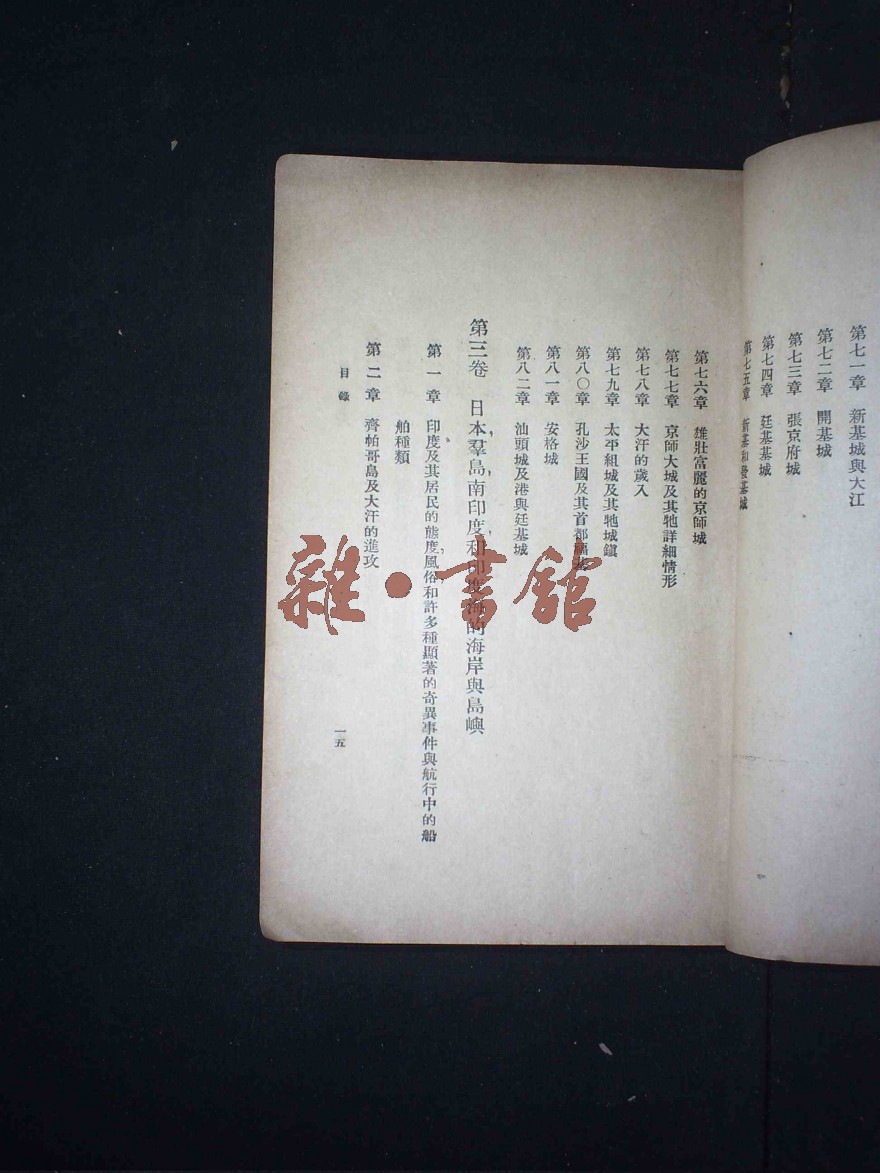 第七一章　新基城與大江
第七二章　開基城
第七三章　張京府城
第七四章　廷基基城
第七五章　新基和發基城
第七六章　雄壯富麗的京師城
第七七章　京師大城及其牠詳細情形
第七八章　大汗的歲入
第七九章　太平組城及其牠城鎮
第八〇章　孔沙王國及其首都
第八一章　安格城
第八二章　汕頭城及港與廷基城
第三卷　日本羣島，南印度，和印度海的海岸與島嶼
第一章　印度及其居民的態度，風俗和許多種顯著的奇異事件與航行中的船
舶種類
第二章　齊帕哥島及大汗的進攻
目錄
一五
雜·書館